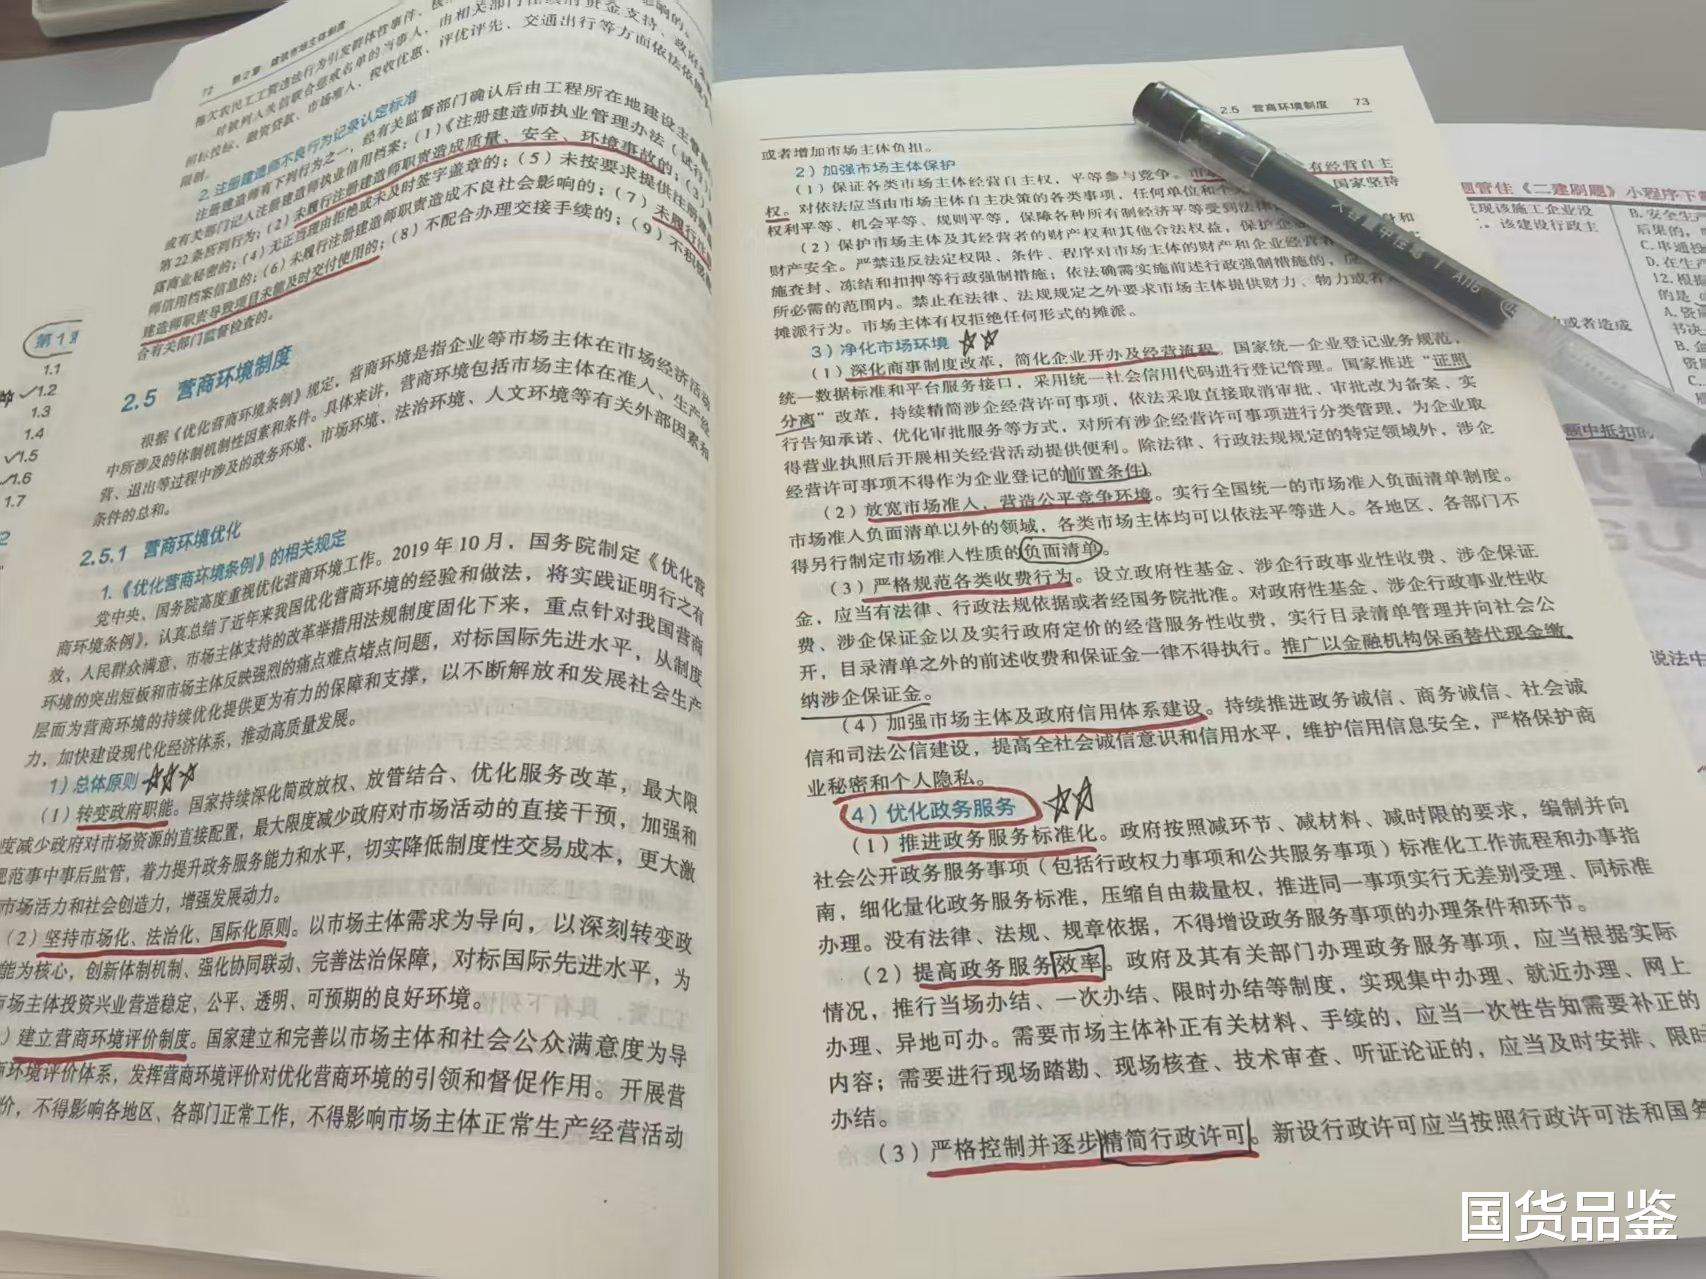 72 第2章 建筑市场主体制度
拖欠农民工工资违法行为引发群体性事件、极
对被列入失信联合惩戒名单的当事人,由相关部门在政府资金支持、政府采
招标投标、融资贷款、市场准入、税收优惠、评优评先、交通出行等方面依法依规予
限制。
2. 注册建造师不良行为记录认定标准
注册建造师有下列行为之一,经有关监督部门确认后由工程所在地建设主管
或有关部门记入注册建造师执业信用档案:(1)《注册建造师执业管理办法(试行)
第22条所列行为;(2)未履行注册建造师职责造成质量、安全、环境事故的;(3)
露商业秘密的;(4)无正当理由拒绝或未及时签字盖章的;(5)未按要求提供注册建
师信用档案信息的;(6)未履行注册建造师职责造成不良社会影响的;(7)未履行注
建造师职责导致项目未能及时交付使用的;(8)不配合办理交接手续的;(9)不积极
合有关部门监督检查的。
2.5 营商环境制度
根据《优化营商环境条例》规定,营商环境是指企业等市场主体在市场经济活动
中所涉及的体制机制性因素和条件。具体来讲,营商环境包括市场主体在准入、生产经
营、退出等过程中涉及的政务环境、市场环境、法治环境、人文环境等有关外部因素和
条件的总和。
2.5.1 营商环境优化
1.《优化营商环境条例》的相关规定
党中央、国务院高度重视优化营商环境工作。2019年10月,国务院制定《优化营
商环境条例》,认真总结了近年来我国优化营商环境的经验和做法,将实践证明行之有
效、人民群众满意、市场主体支持的改革举措用法规制度固化下来,重点针对我国营商
环境的突出短板和市场主体反映强烈的痛点难点堵点问题,对标国际先进水平,从制度
层面为营商环境的持续优化提供更为有力的保障和支撑,以不断解放和发展社会生产
力,加快建设现代化经济体系,推动高质量发展。
1)总体原则
(1)转变政府职能。国家持续深化简政放权、放管结合、优化服务改革,最大限
度减少政府对市场资源的直接配置,最大限度减少政府对市场活动的直接干预,加强和
规范事中事后监管,着力提升政务服务能力和水平,切实降低制度性交易成本,更大激
市场活力和社会创造力,增强发展动力。
(2)坚持市场化、法治化、国际化原则。以市场主体需求为导向,以深刻转变政
能为核心,创新体制机制、强化协同联动、完善法治保障,对标国际先进水平,为
市场主体投资兴业营造稳定、公平、透明、可预期的良好环境。
)建立营商环境评价制度。国家建立和完善以市场主体和社会公众满意度为导
商环境评价体系,发挥营商环境评价对优化营商环境的引领和督促作用。开展营
价,不得影响各地区、各部门正常工作,不得影响市场主体正常生产经营活动
第1章
1.1
1.2
1.3
1.4
1.5
1.6
1.7
2.5 营商环境制度 73
或者增加市场主体负担。
2)加强市场主体保护
(1)保证各类市场主体经营自主权,平等参与竞争。市 有经营自主
权。对依法应当由市场主体自主决策的各类事项,任何单位和个 国家坚持
权利平等、机会平等、规则平等,保障各种所有制经济平等受到法律
(2)保护市场主体及其经营者的财产权和其他合法权益,保护企业 身和
财产安全。严禁违反法定权限、条件、程序对市场主体的财产和企业经营者
施查封、冻结和扣押等行政强制措施;依法确需实施前述行政强制措施的,应
所必需的范围内。禁止在法律、法规规定之外要求市场主体提供财力、物力或者
摊派行为。市场主体有权拒绝任何形式的摊派。
3)净化市场环境
(1)深化商事制度改革,简化企业开办及经营流程。国家统一企业登记业务规范,
统一数据标准和平台服务接口,采用统一社会信用代码进行登记管理。国家推进“证照
分离”改革,持续精简涉企经营许可事项,依法采取直接取消审批、审批改为备案、实
行告知承诺、优化审批服务等方式,对所有涉企经营许可事项进行分类管理,为企业取
得营业执照后开展相关经营活动提供便利。除法律、行政法规规定的特定领域外,涉企
经营许可事项不得作为企业登记的前置条件。
(2)放宽市场准入,营造公平竞争环境。实行全国统一的市场准入负面清单制度。
市场准入负面清单以外的领域,各类市场主体均可以依法平等进入。各地区、各部门不
得另行制定市场准入性质的负面清单。
(3)严格规范各类收费行为。设立政府性基金、涉企行政事业性收费、涉企保证
金,应当有法律、行政法规依据或者经国务院批准。对政府性基金、涉企行政事业性收
费、涉企保证金以及实行政府定价的经营服务性收费,实行目录清单管理并向社会公
开,目录清单之外的前述收费和保证金一律不得执行。推广以金融机构保函替代现金缴
纳涉企保证金。
(4)加强市场主体及政府信用体系建设。持续推进政务诚信、商务诚信、社会诚
信和司法公信建设,提高全社会诚信意识和信用水平,维护信用信息安全,严格保护商
业秘密和个人隐私。
4)优化政务服务
(1)推进政务服务标准化。政府按照减环节、减材料、减时限的要求,编制并向
社会公开政务服务事项(包括行政权力事项和公共服务事项)标准化工作流程和办事指
南,细化量化政务服务标准,压缩自由裁量权,推进同一事项实行无差别受理、同标准
办理。没有法律、法规、规章依据,不得增设政务服务事项的办理条件和环节。
(2)提高政务服务效率。政府及其有关部门办理政务服务事项,应当根据实际
情况,推行当场办结、一次办结、限时办结等制度,实现集中办理、就近办理、网上
办理、异地可办。需要市场主体补正有关材料、手续的,应当一次性告知需要补正的
内容;需要进行现场踏勘、现场核查、技术审查、听证论证的,应当及时安排、限时
办结。
(3)严格控制并逐步精简行政许可。新设行政许可应当按照行政许可法和国务
题管佳《二建刷题》小程序下
发现该施工企业没
,该建设行政主
或者造成
题中抵扣的
说法中
B.安全生产
后果的,
C.串通投
D.在生产
12.根据
的是(
A.资质
书决
B.企
资质
C.
国货品鉴